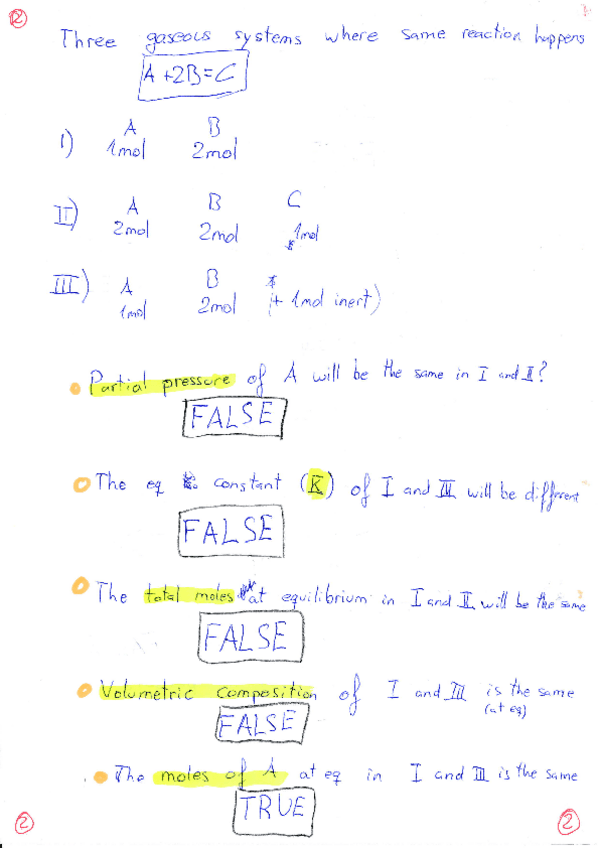 2
Three gaseous systems where same reaction happens
A + 2B = C
I) A B
1mol 2mol
II) A B C
2mol 2mol 1mol
III) A B
1mol 2mol (+ 1mol inert)
Partial pressure of A will be the same in I and II?
FALSE
The eq constant (K) of I and III will be different
FALSE
The total moles at equilibrium in I and II will be the same
FALSE
Volumetric composition of I and III is the same
(at eq)
FALSE
The moles of A at eq in I and III is the same
TRUE
2 2